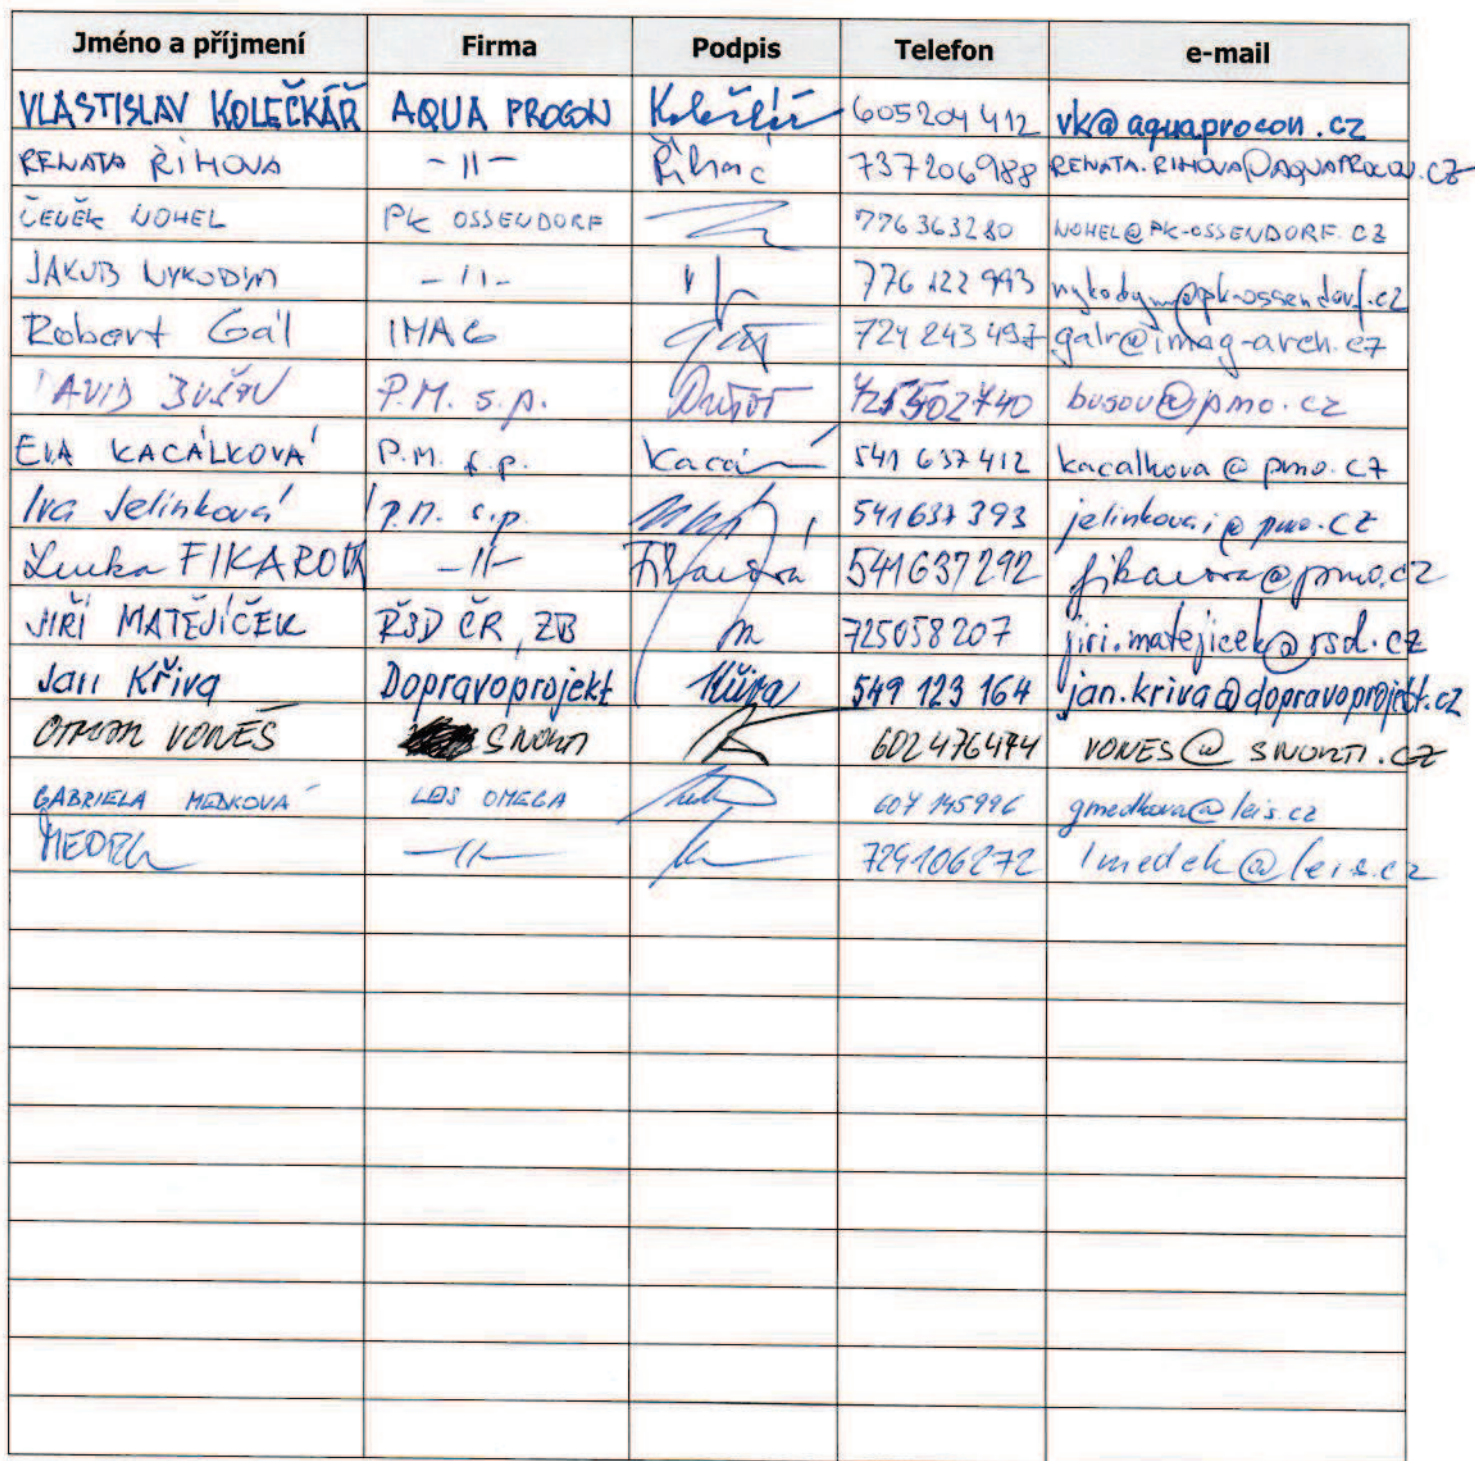 Jméno a příjmení Firma Podpis Telefon e-mail
VLASTISLAV KOLEČKÁŘ AQUA PROCON Kolečkář 605204412 vk@aquaprocon.cz
RENATA ŘIHOVA -11- 737206988 RENATA.RIHOVA@AQUAPROCON.CZ
ČENĚK NOHEL PK OSSENDORF 776363280 NOHEL@PK-OSSENDORF.CZ
JAKUB NYKODYM -11- 776 122 993 nykodym@pk-ossendorf.cz
Robert Gál IMAG 724 243 497 galr@imag-arch.cz
DAVID P.M. s.p. 725502740 busov@pmo.cz
EVA KACÁLKOVÁ P.M. s.p. 541 637 412 kacalkova@pmo.cz
Iva Jelinková P.M. s.p. 541637393 jelinkovai@pmo.cz
Lenka FIKAROVÁ -11- Fikarová 541637292 fikarova@pmo.cz
JIŘÍ MATĚJÍČEK ŘSD ČR, ZB 725058207 jiri.matejicek@rsd.cz
Jan Křiva Dopravoprojekt Křiva 549 123 164 jan.kriva@dopravoprojekt.cz
VONEŠ
GABRIELA MEDKOVÁ OMEGA 607 145996 gmedkova@leis.cz
MEDEK -11- 729106272 lmedek@leis.cz